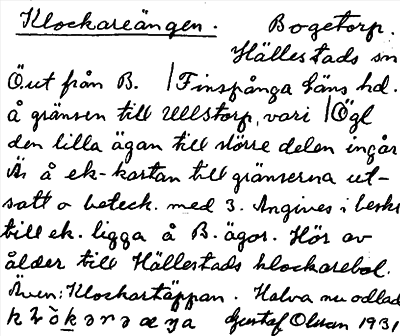 Klockareängen. Bogetorp.
Hällestads sn
Öut från B. | Finspånga läns hd.
å gränsen till Ullstorp, vari | Ögl
den lilla ägan till större delen ingår
Är å ek-kartan till gränserna ut-
satt o beteck. med 3. Angives i beskr
till ek. ligga å B. ägor. Hör av
ålder till Hällestads klockarebol.
Även: Klockartäppan. Halva nu odlad
Gustaf Olsson 1931